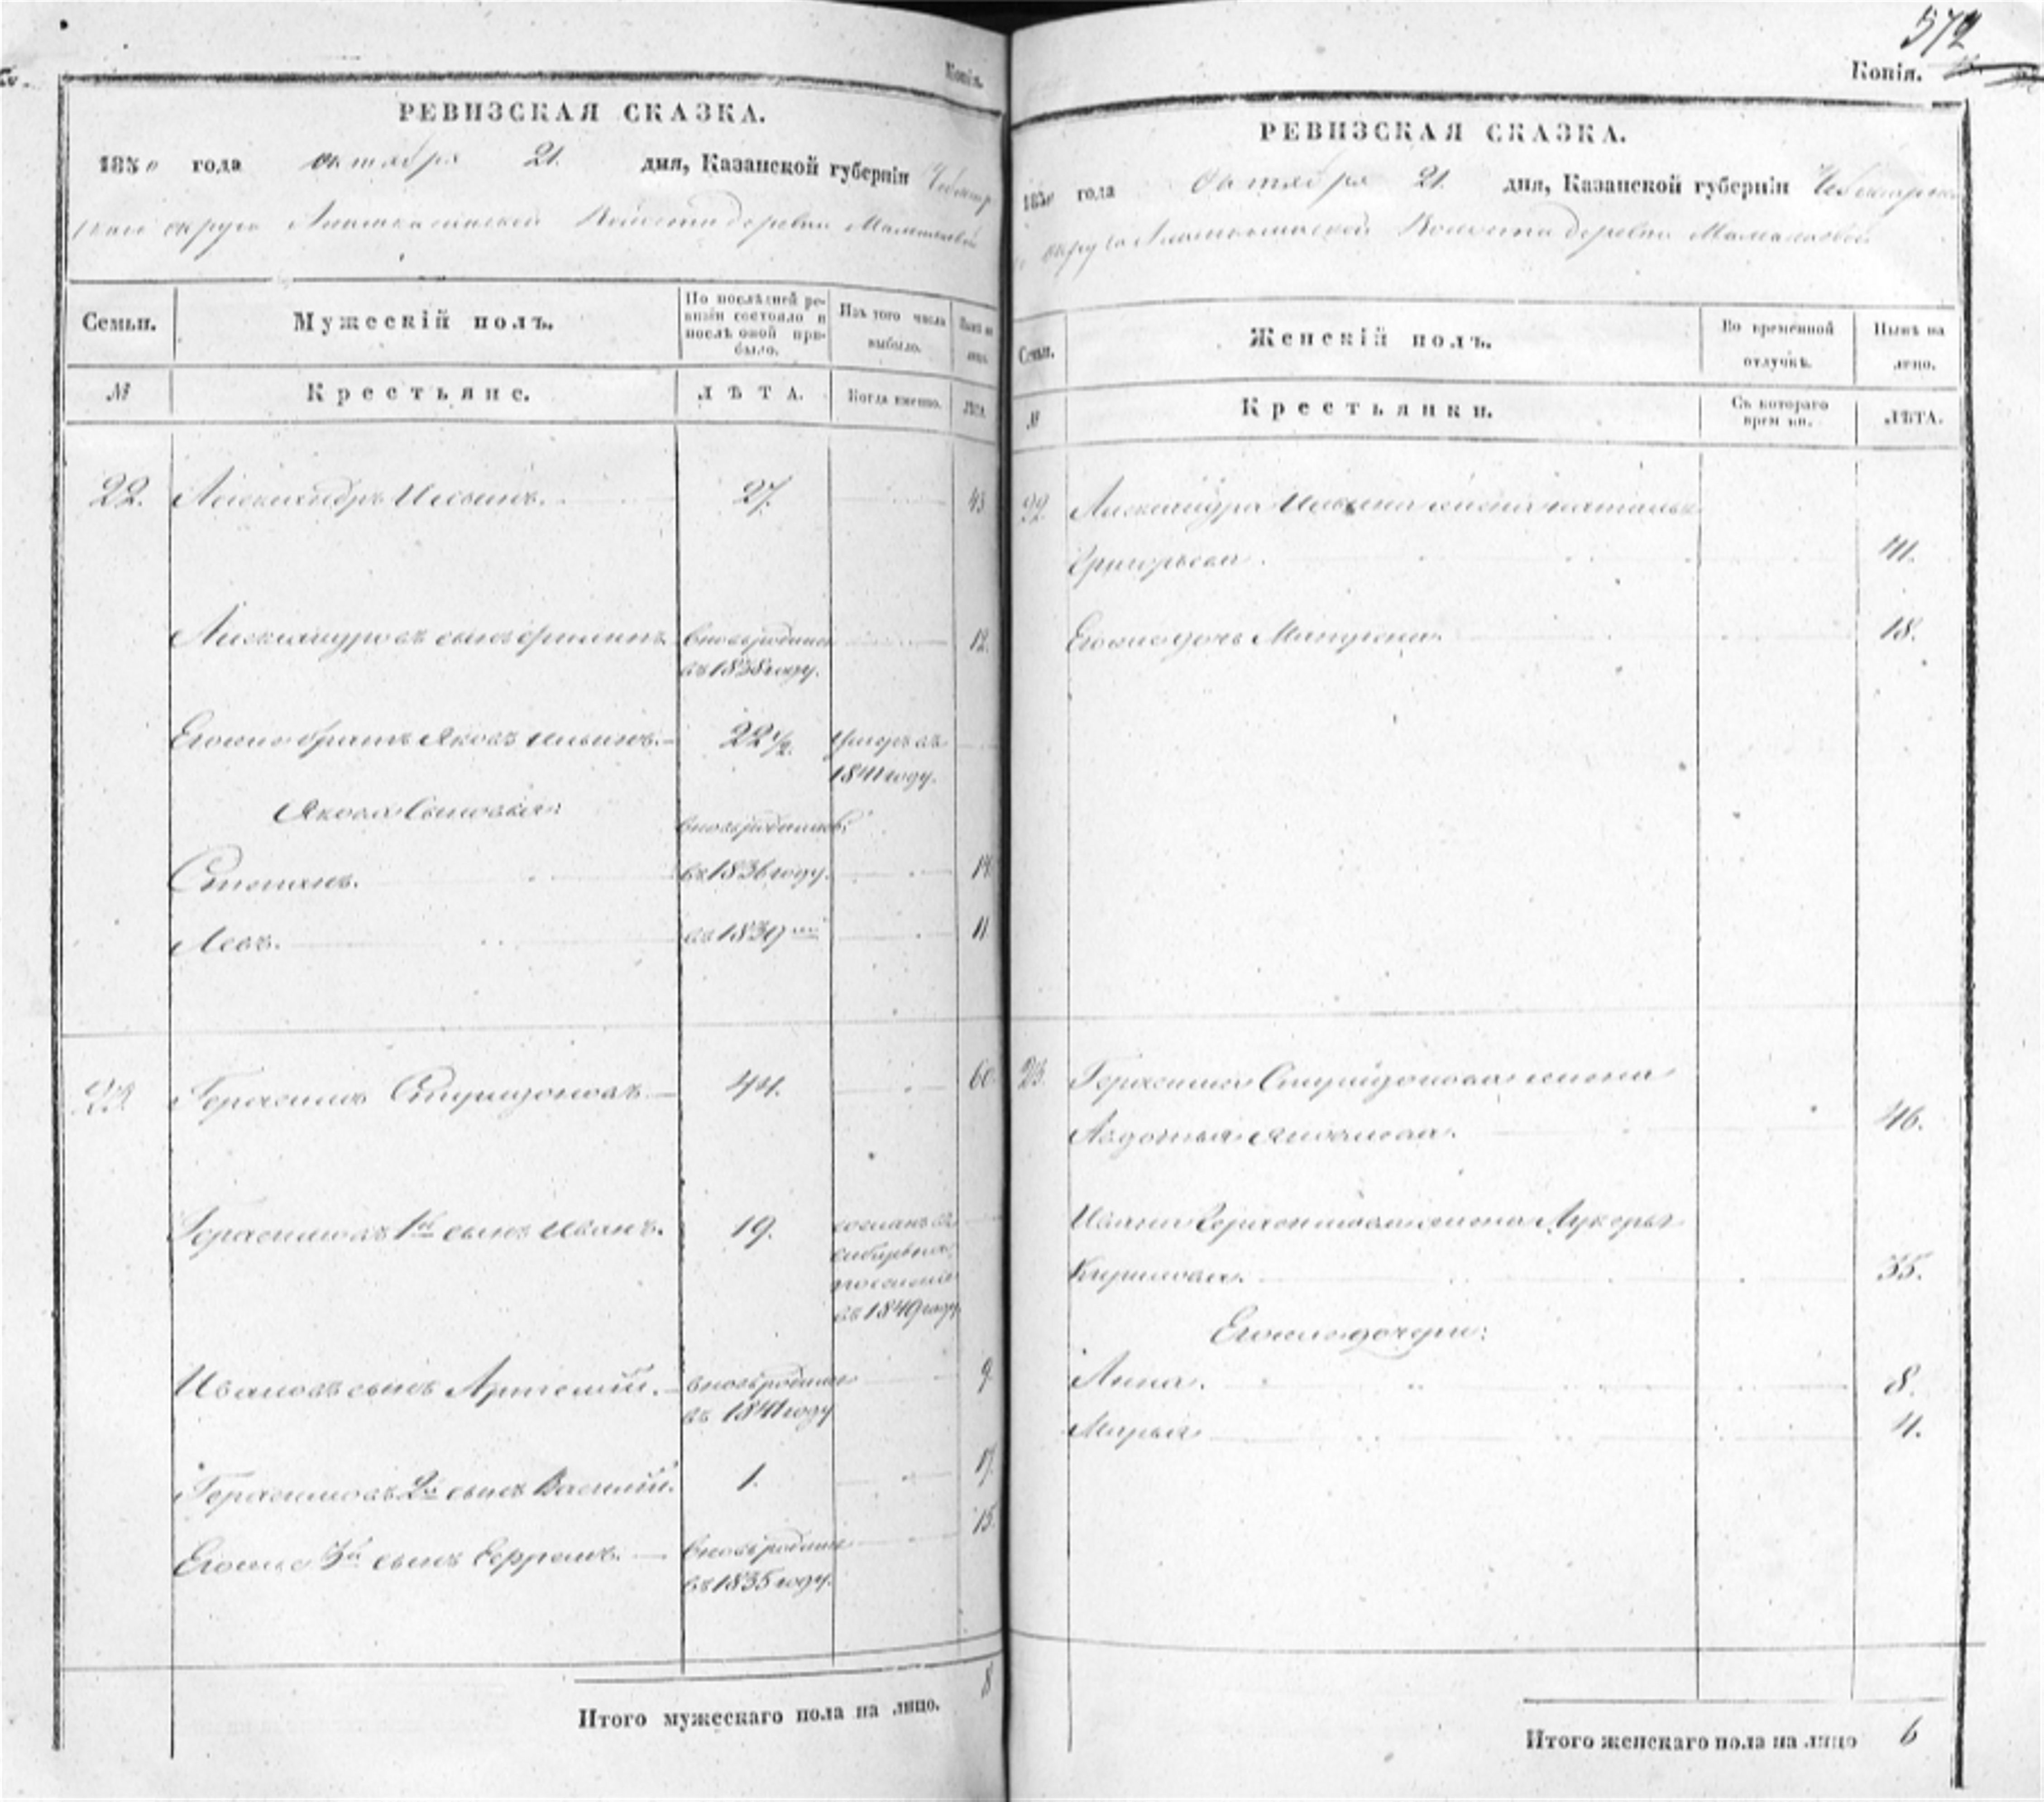 Копія.
РЕВИЗСКАЯ СКАЗКА.
1850 года октября 21. дня, Казанской губерніи Чебоксар
скаго округа волости деревни
Семьи. Мужескій полъ. По послѣдней ре-визіи состояло и послѣ оной при-было. Изъ того числа выбыло. Нынѣ на лицо.
№ Крестьяне. ЛѢТА. Когда именно. ЛѢТА.
22. Александръ Ильинъ. 27. 43
Александровъ сынъ Филипъ вновьрожденъ 12.
въ 1838 году.
Егоже братъ Яковъ Ильинъ. 22 1/2. умеръ въ
1841 году.
Якова Сыновья: вновьрожденные
Степанъ. въ 1836 году. 14
Левъ. въ 1839 11
23 Герасимъ Спиридоновъ 44. 60
Герасимовъ 1й сынъ Иванъ. 19. сосланъ въ
сибирь на
поселеніе
въ 1849 году
Ивановъ сынъ Артемій. вновьрожденъ 9
въ 1841 году
Герасимовъ 2й сынъ Василій. 1. 17.
Егоже 3й сынъ Ефремъ. вновьрожденъ 15.
въ 1835 году.
Итого мужескаго пола на лицо. 8
572
Копія.
РЕВИЗСКАЯ СКАЗКА.
1850 года Октября 21. дня, Казанской губерніи Чебоксарска
го округа Волости деревни
Семьи. Женскій полъ. Во временной отлучкѣ. Нынѣ на лицо.
№ Крестьянки. Съ котораго времени. ЛѢТА.
22 Александра Ильина жена Наталья
Григорьева. 41.
Егоже дочь 18.
23. Герасима Спиридонова жена
Авдотья Яковлева. 46.
Ивана Герасимова жена Лукерья
Кирилова. 35.
Егоже дочери:
Анна. 8.
Марья 4.
Итого женскаго пола на лицо 6